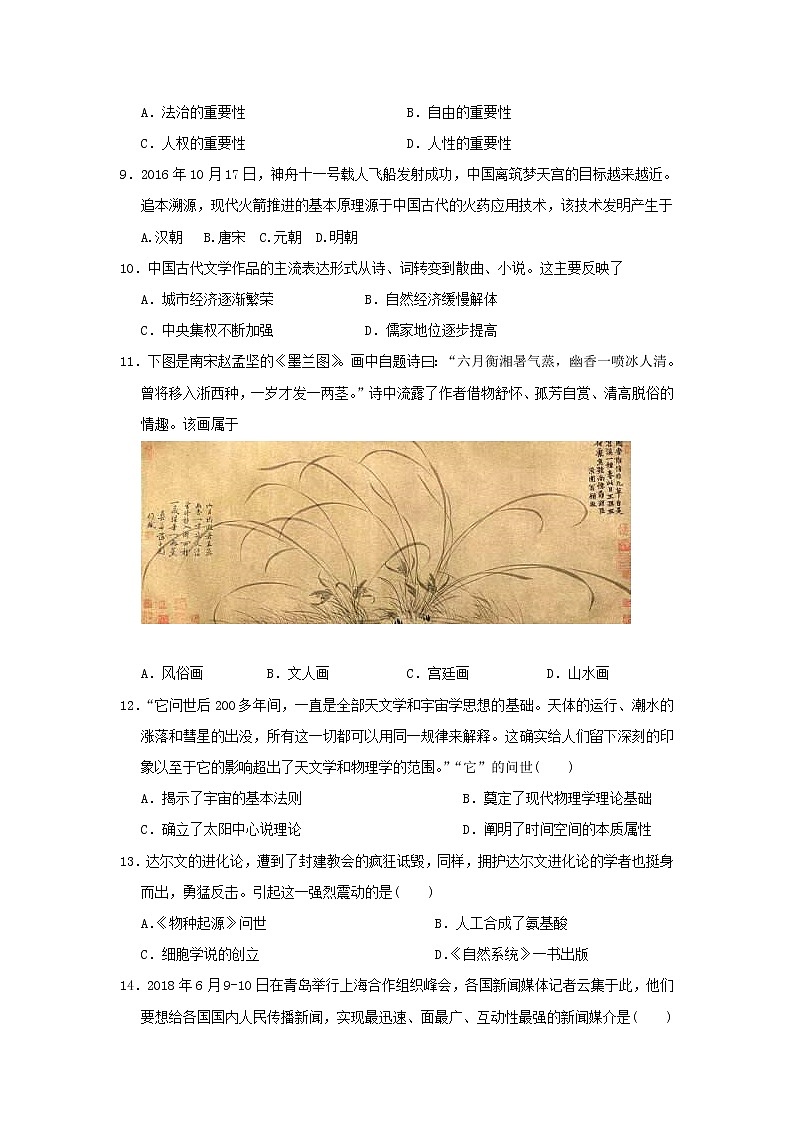 A. 法治的重要性 B. 自由的重要性
C. 人权的重要性 D. 人性的重要性
9. 2016年10月17日，神舟十一号载人飞船发射成功，中国离筑梦天宫的目标越来越近。
追本溯源，现代火箭推进的基本原理源于中国古代的火药应用技术，该技术发明产生于
A.汉朝 B.唐宋 C.元朝 D.明朝
10. 中国古代文学作品的主流表达形式从诗、词转变到散曲、小说。这主要反映了
A. 城市经济逐渐繁荣 B. 自然经济缓慢解体
C. 中央集权不断加强 D. 儒家地位逐步提高
11. 下图是南宋赵孟坚的《墨兰图》。画中自题诗曰：“六月衡湘暑气蒸，幽香一喷冰人清。
曾将移入浙西种，一岁才发一两茎。”诗中流露了作者借物舒怀、孤芳自赏、清高脱俗的
情趣。该画属于
A. 风俗画 B. 文人画 C. 宫廷画 D. 山水画
12. “它问世后200多年间，一直是全部天文学和宇宙学思想的基础。天体的运行、潮水的
涨落和彗星的出没，所有这一切都可以用同一规律来解释。这确实给人们留下深刻的印
象以至于它的影响超出了天文学和物理学的范围。”“它”的问世( )
A. 揭示了宇宙的基本法则 B. 奠定了现代物理学理论基础
C. 确立了太阳中心说理论 D. 阐明了时间空间的本质属性
13. 达尔文的进化论，遭到了封建教会的疯狂诋毁，同样，拥护达尔文进化论的学者也挺身
而出，勇猛反击。引起这一强烈震动的是( )
A.《物种起源》问世 B. 人工合成了氨基酸
C. 细胞学说的创立 D.《自然系统》一书出版
14. 2018年6月9-10日在青岛举行上海合作组织峰会，各国新闻媒体记者云集于此，他们
要想给各国国内人民传播新闻，实现最迅速、面最广、互动性最强的新闻媒介是( )